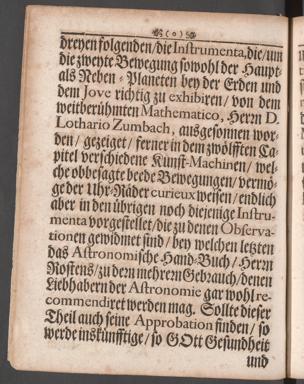 (o)
dreyen folgenden/die Instrumenta, die/um
die zweyte Bewegung sowohl der Haupt-
als Neben-Planeten bey der Erden und
dem Jove richtig zu exhibiren/ von dem
weitberühmten Mathematico, Herrn D.
Lothario Zumbach, außgesonnen wor-
den/ gezeiget/ ferner in dem zwölfften Ca-
pitel verschiedene Kunst-Machinen/ wel-
che obbesagte beede Bewegungen/ vermö-
ge der Uhr-Räder curieux weisen/ endlich
aber in den übrigen noch diejenige Instru-
menta vorgestellet/die zu denen Observa-
tionen gewidmet sind/ bey welchen letzten
das Astronomische Hand-Buch/ Herrn
Rostens/ zu dem mehrern Gebrauch/denen
Liebhabern der Astronomie gar wohl re-
commendiret werden mag. Sollte dieser
Theil auch seine Approbation finden/ so
werde inskünfftige/ so GOtt Gesundheit
und